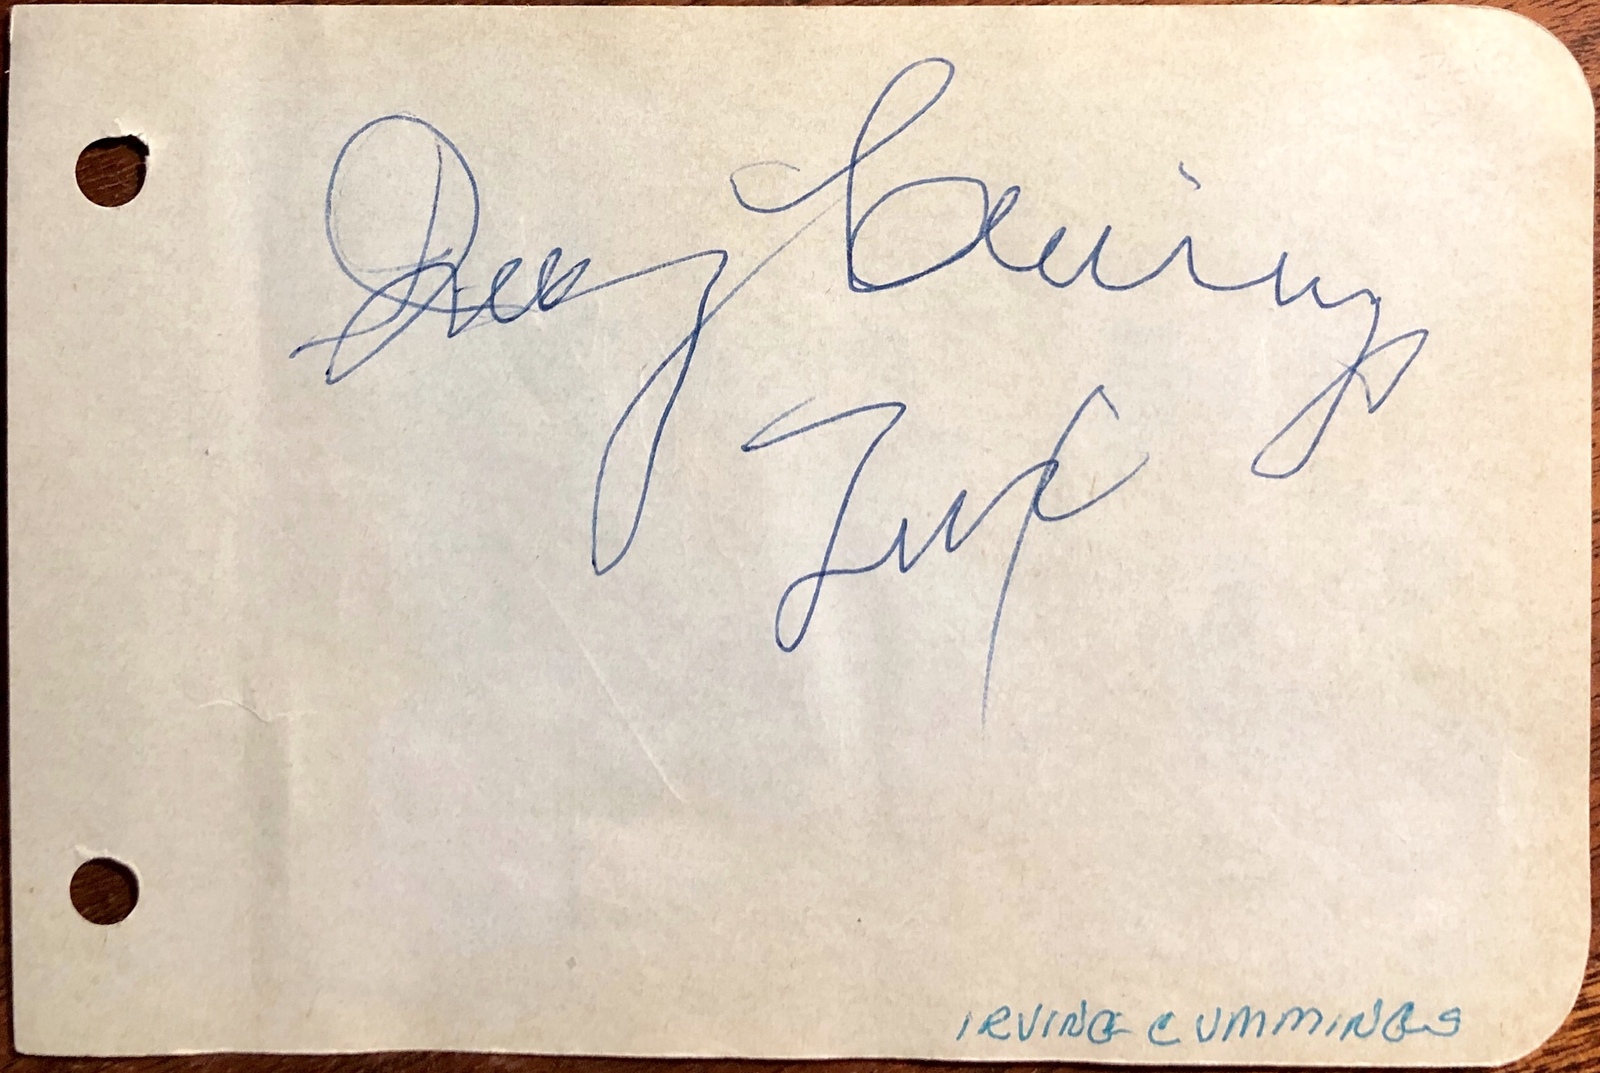 Irving Cummings
IRVING CUMMINGS